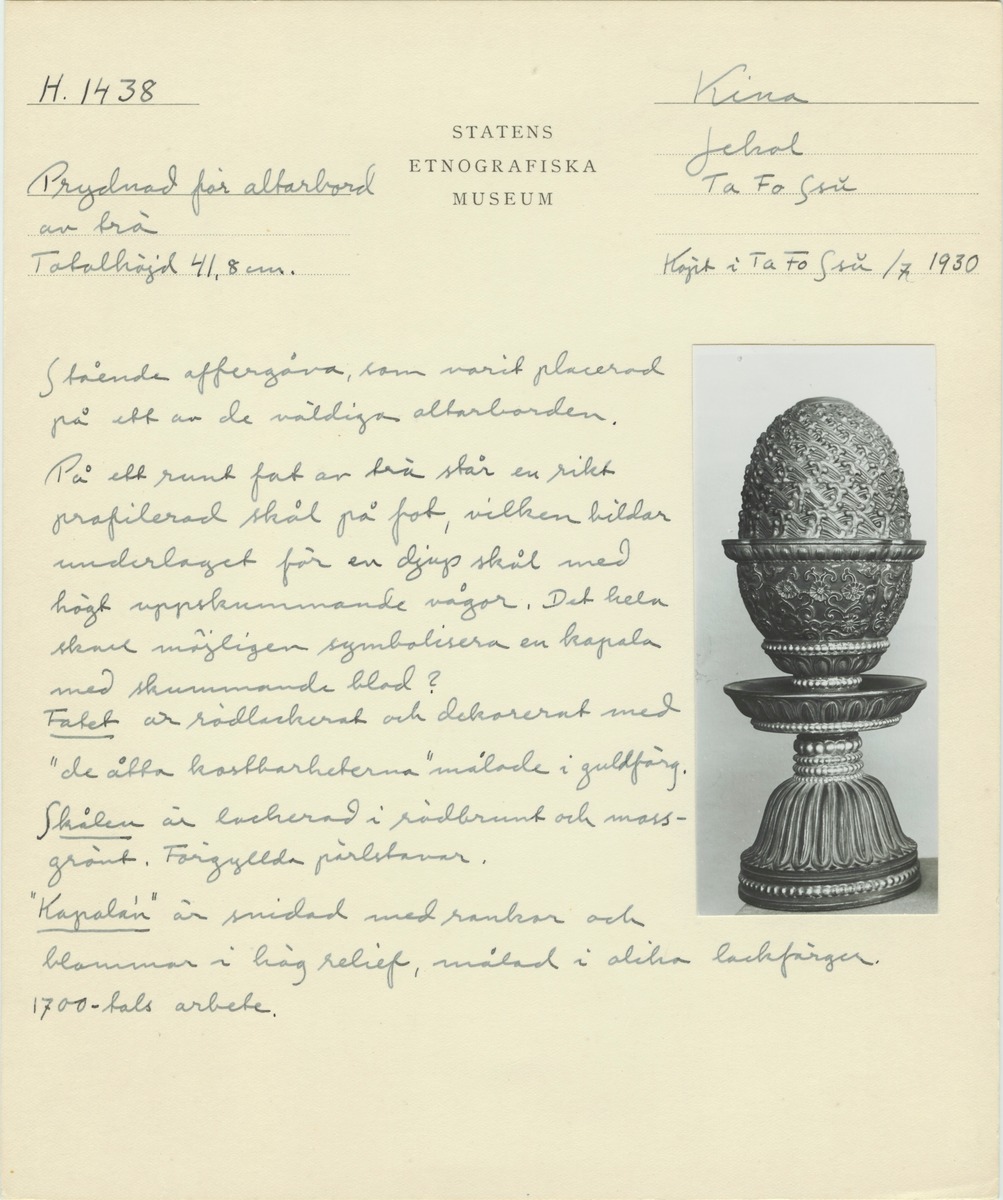 H. 1438
Kina
STATENS
ETNOGRAFISKA
MUSEUM
Jehol
Ta Fo Ssŭ
Prydnad för altarbord
av trä
Totalhöjd 41,8 cm.
Köpt i Ta Fo Ssŭ /7 1930
Stående offergåva, som varit placerad
på ett av de väldiga altarborden.
På ett runt fat av trä står en rikt
profilerad skål på fot, vilken bildar
underlaget för en djup skål med
högt uppskummande vågor. Det hela
skall möjligen symbolisera en kapala
med skummande blod?
Fatet är rödlackerat och dekorerat med
"de åtta kostbarheterna" målade i guldfärg.
Skålen är lackerad i rödbrunt och moss-
grönt. Förgyllda pärlstavar.
"Kapala'n" är snidad med rankor och
blommor i hög relief, målad i olika lackfärger.
1700-tals arbete.